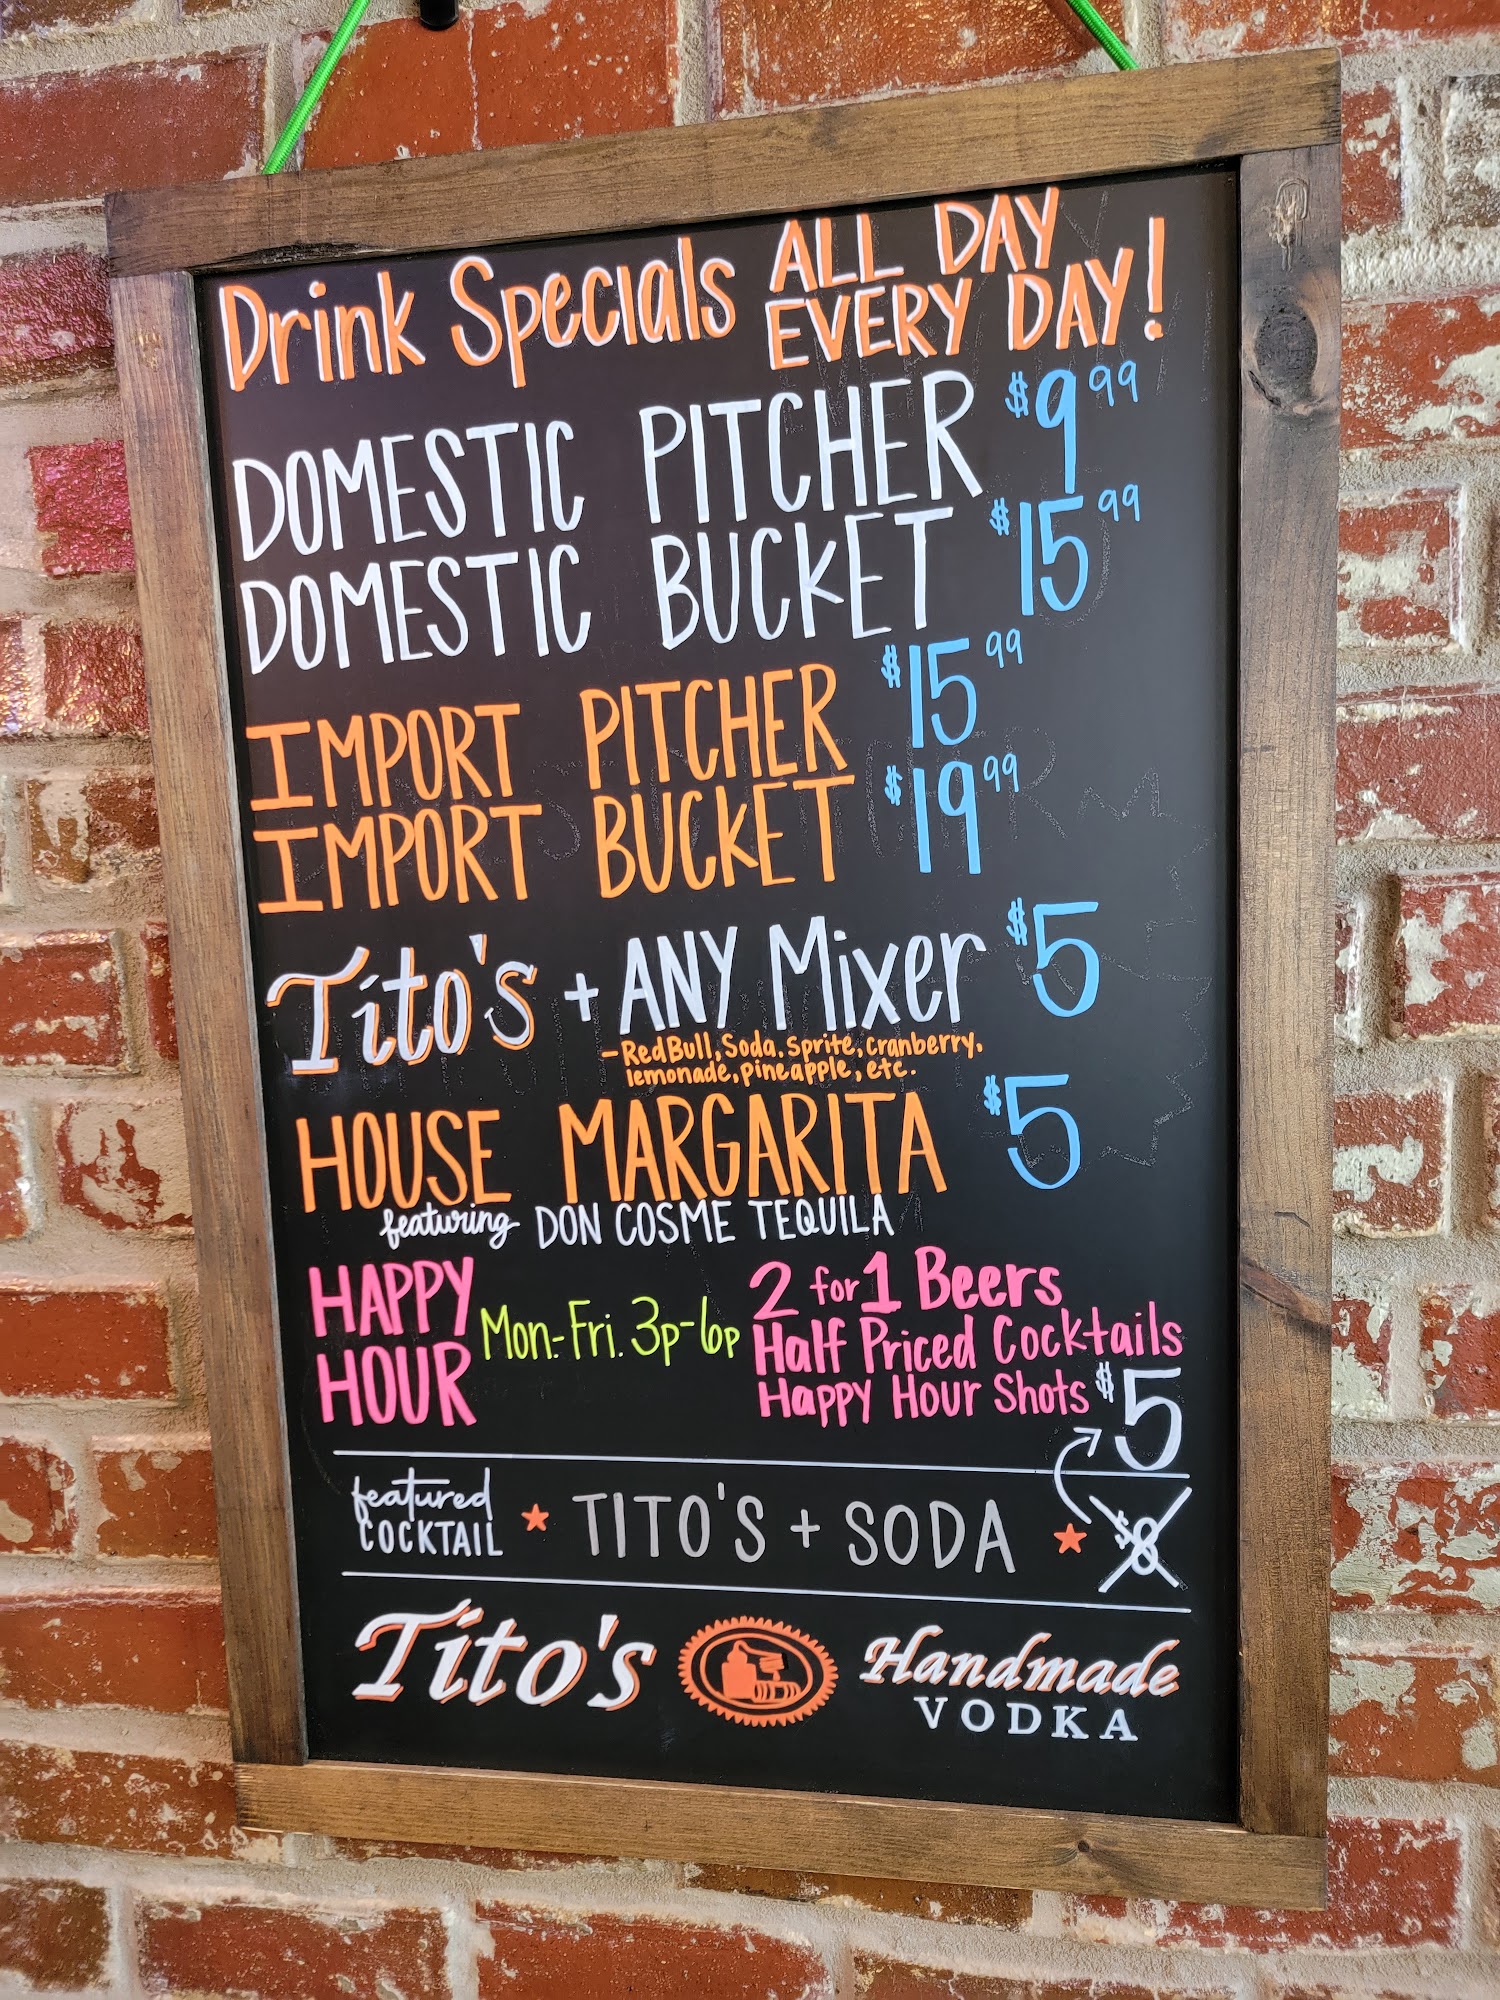 Drink Specials ALL DAY EVERY DAY!
DOMESTIC PITCHER $9.99
DOMESTIC BUCKET $15.99
IMPORT PITCHER $15.99
IMPORT BUCKET $19.99
Tito's + ANY Mixer $5
- RedBull, Soda, Sprite, cranberry,
lemonade, pineapple, etc.
HOUSE MARGARITA $5
featuring DON COSME TEQUILA
HAPPY HOUR Mon.-Fri. 3p-6p
2 for 1 Beers
Half Priced Cocktails
Happy Hour Shots $5
featured COCKTAIL ★ TITO'S + SODA ★ $8
Tito's Handmade VODKA